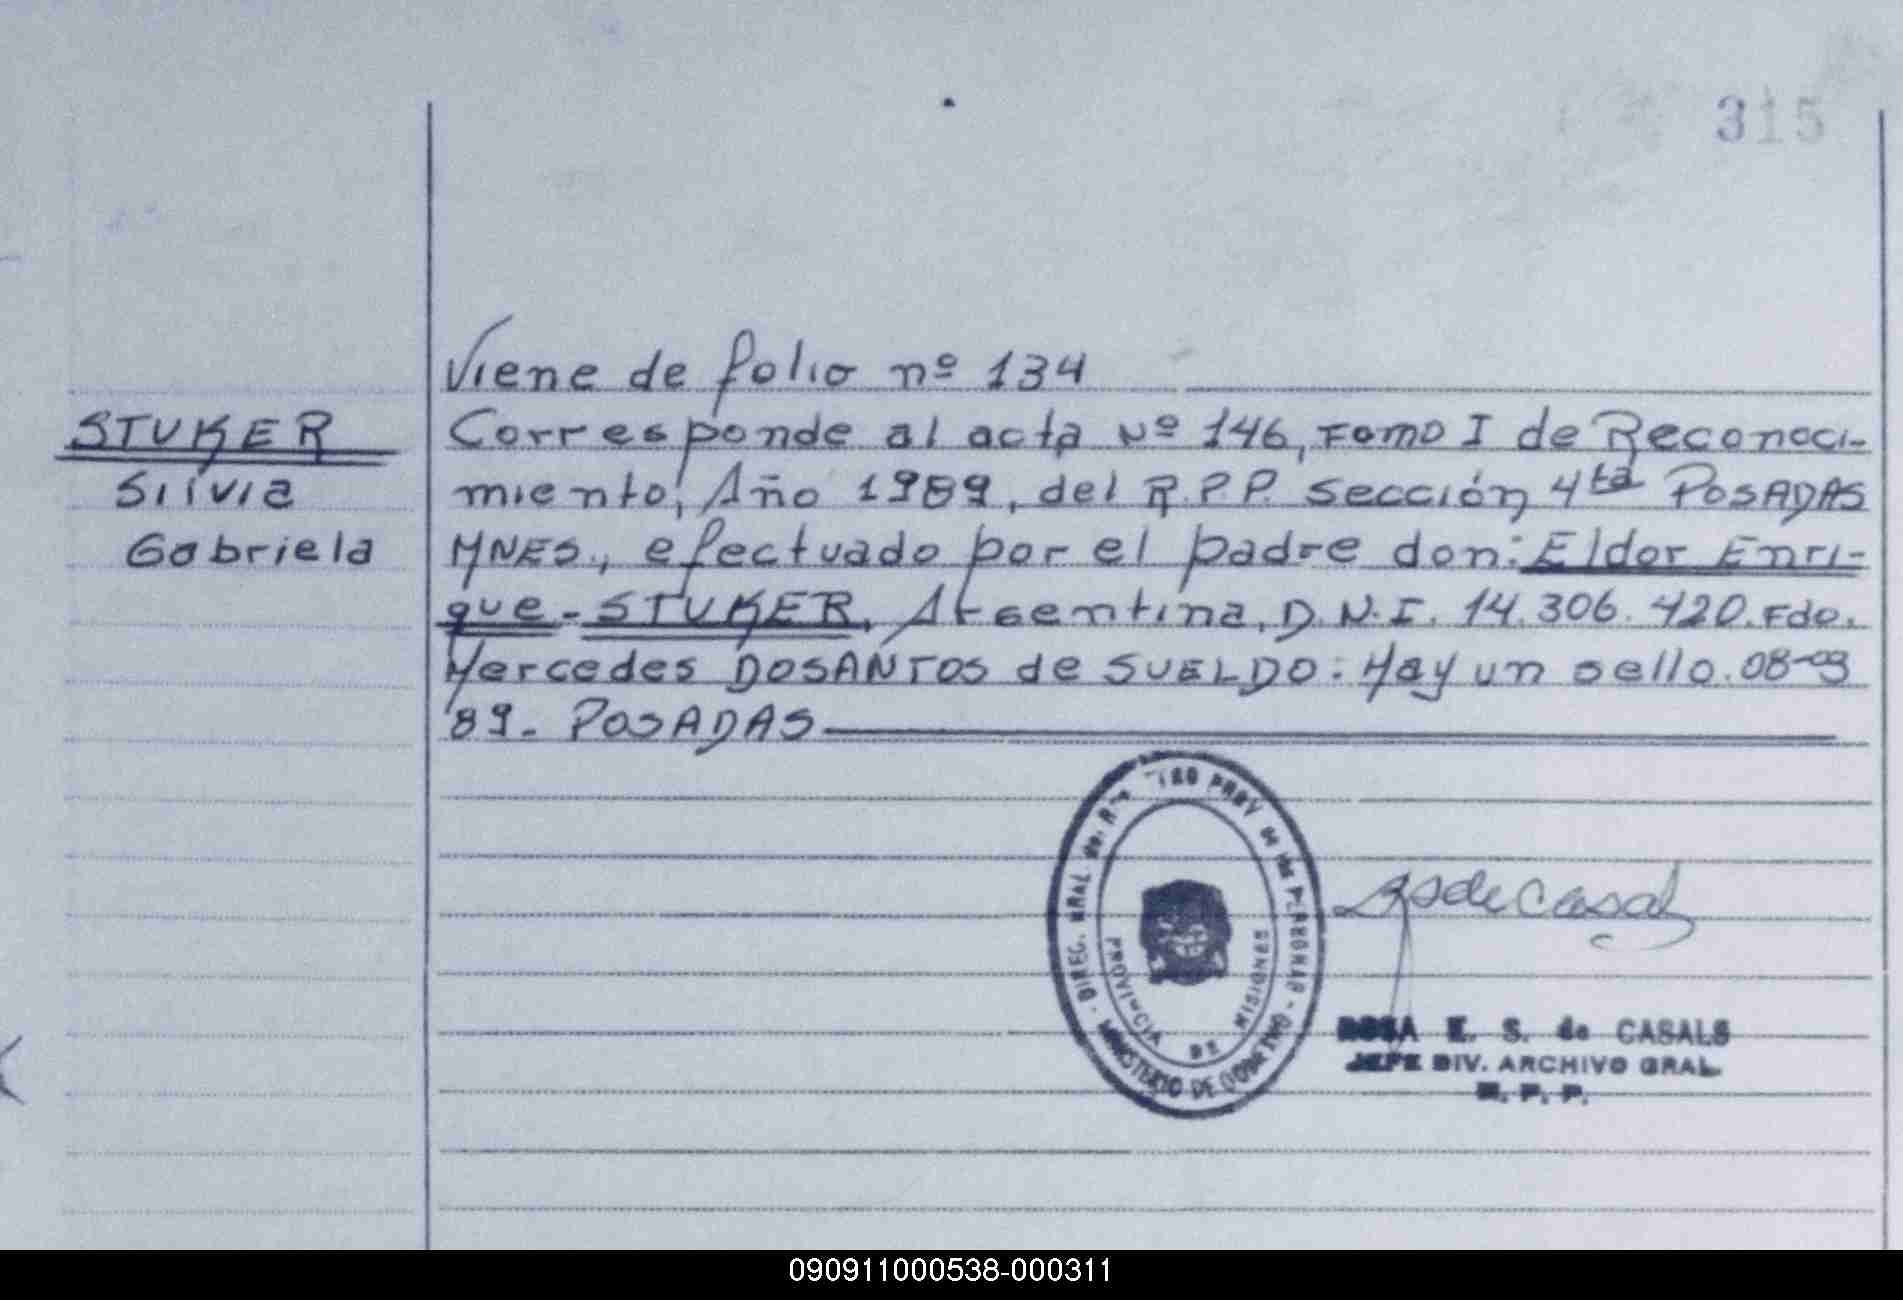 315
Viene de folio nº 134
STUKER
Silvia
Gabriela
Corresponde al acta Nº 146, Tomo I de Reconoci-
miento, Año 1989, del R.P.P. sección 4ta POSADAS
MNES., efectuado por el padre don: Eldor Enri-
que - STUKER, Argentina, D.N.I. 14.306.420. Fdo.
Mercedes DOSANTOS de SUELDO. Hay un sello. 08-09
89. POSADAS
DIREC. GRAL. de PROV de las PERSONAS - MINISTERIO DE GOBIERNO -
PROVINCIA DE MISIONES
ROSA E. S. de CASALS
JEFE DIV. ARCHIVO GRAL.
R. P. P.
090911000538-000311